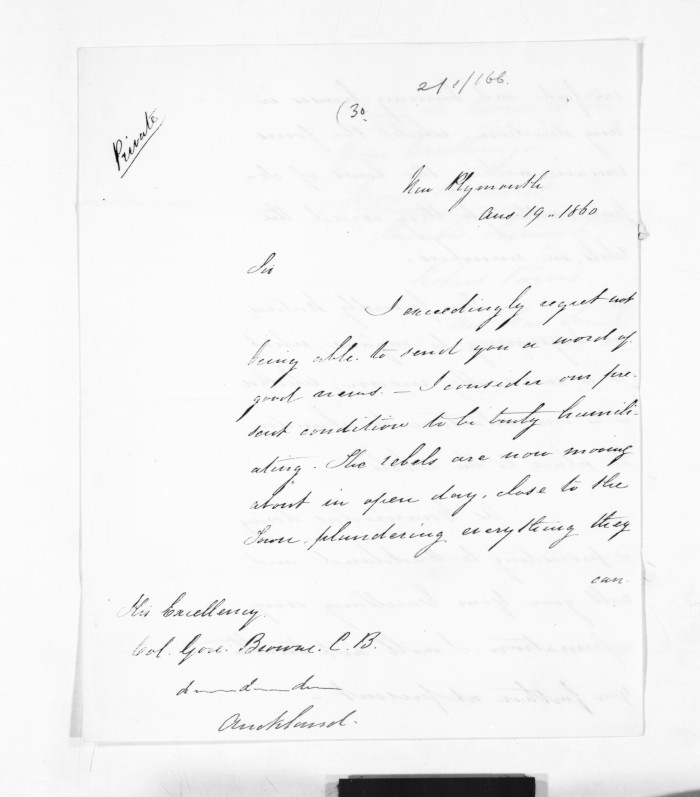 21/1/66.
(30.
Private
New Plymouth
Aug 19.. 1860
Sir
I exceedingly regret not
being able to send you a word of
good news. — I consider our pre-
sent condition to be truly humili-
ating. The rebels are now moving
about in open day, close to the
Town, plundering everything they
can.
His Excellency.
Col. Gore Browne. C.B.
Auckland.